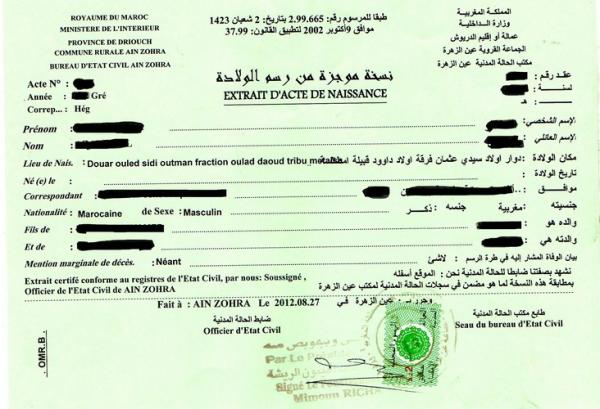 ROYAUME DU MAROC
MINISTERE DE L'INTERIEUR
PROVINCE DE DRIOUCH
COMMUNE RURALE AIN ZOHRA
BUREAU D'ETAT CIVIL AIN ZOHRA
طبقا للمرسوم رقم: 2.99.665 بتاريخ: 2 شعبان 1423
موافق 9 أكتوبر 2002 لتطبيق القانون: 37.99
المملكة المغربية
وزارة الداخلية
عمالة أو إقليم الدريوش
الجماعة القروية عين الزهرة
مكتب الحالة المدنية عين الزهرة
نسخة موجزة من رسم الولادة
EXTRAIT D'ACTE DE NAISSANCE
Acte N° :
عقد رقم :
Année : Gré
لسنة :
Correp... : Hég
هـ
Prénom :
الإسم الشخصي:
Nom :
الإسم العائلي:
Lieu de Nais. : Douar ouled sidi outman fraction oulad daoud tribu
مكان الولادة: دوار اولاد سيدي عثمان فرقة اولاد داوود قبيلة
Né (e) le :
تاريخ الولادة :
Correspondant :
موافق :
Nationalité : Marocaine de Sexe : Masculin
جنسيته : مغربية جنسه : ذكر
Fils de :
والده هو :
Et de :
والدته هي :
Mention marginale de décès. : Néant
بيان الوفاة المشار إليه في طرة الرسم : لاشئ
Extrait certifé conforme au registres de l'Etat Civil, par nous: Soussigné ,
Officier de l'Etat Civil de AIN ZOHRA
نشهد بصفتنا ضابطا للحالة المدنية نحن : الموقع أسفله
بمطابقة هذه النسخة لما هو مضمن في سجلات الحالة المدنية لمكتب عين الزهرة
Fait à : AIN ZOHRA Le 2012.08.27
وحرر بـ: عين الزهرة في
ضابط الحالة المدنية
Officier d'Etat Civil
طابع مكتب الحالة المدنية
Seau du bureau d'Etat Civil
. OMR.B .
Par Le
Signé Le
Mimoun RICHA